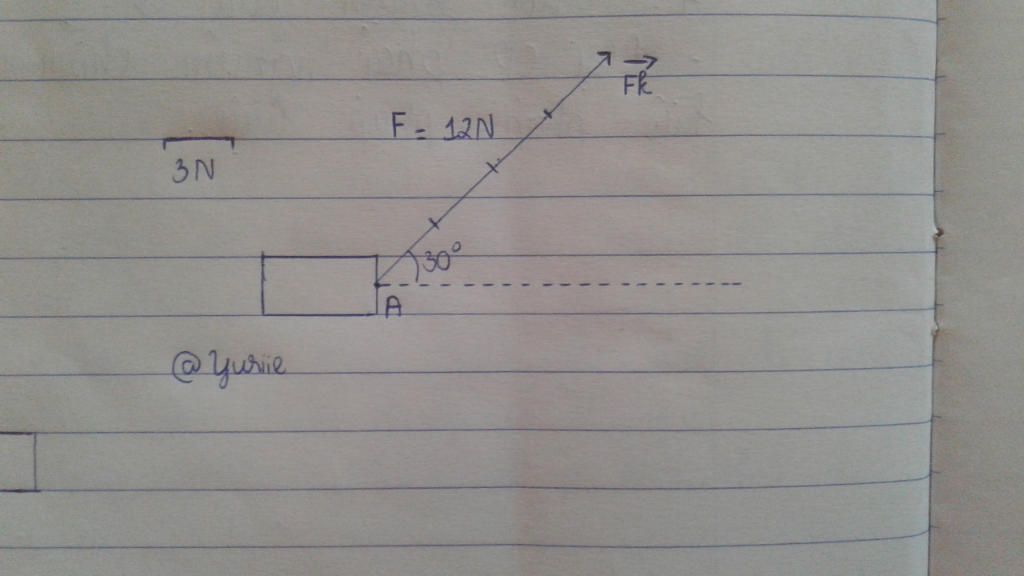 Fk
F = 12N
3N
30°
A
@Yuriie